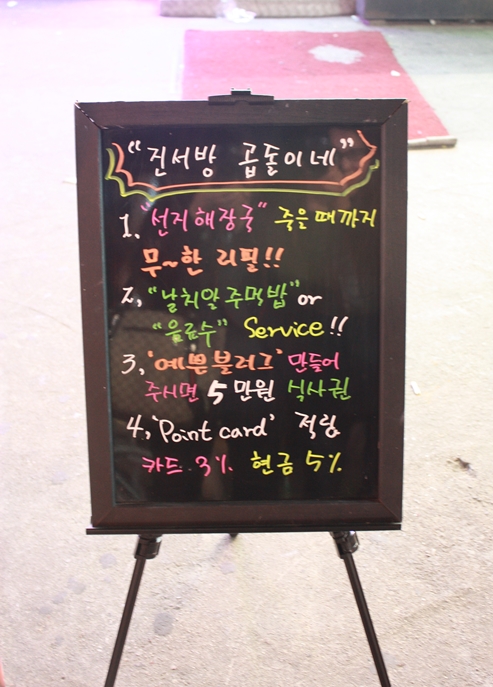 "진서방 곱돌이네"
1. "선지해장국" 죽을때까지
무~한 리필!!
2, "날치알주먹밥" or
"음료수" Service!!
3, '예쁜블러그' 만들어
주시면 5만원 식사권
4, 'Point card' 적립
카드 3% 현금 5%